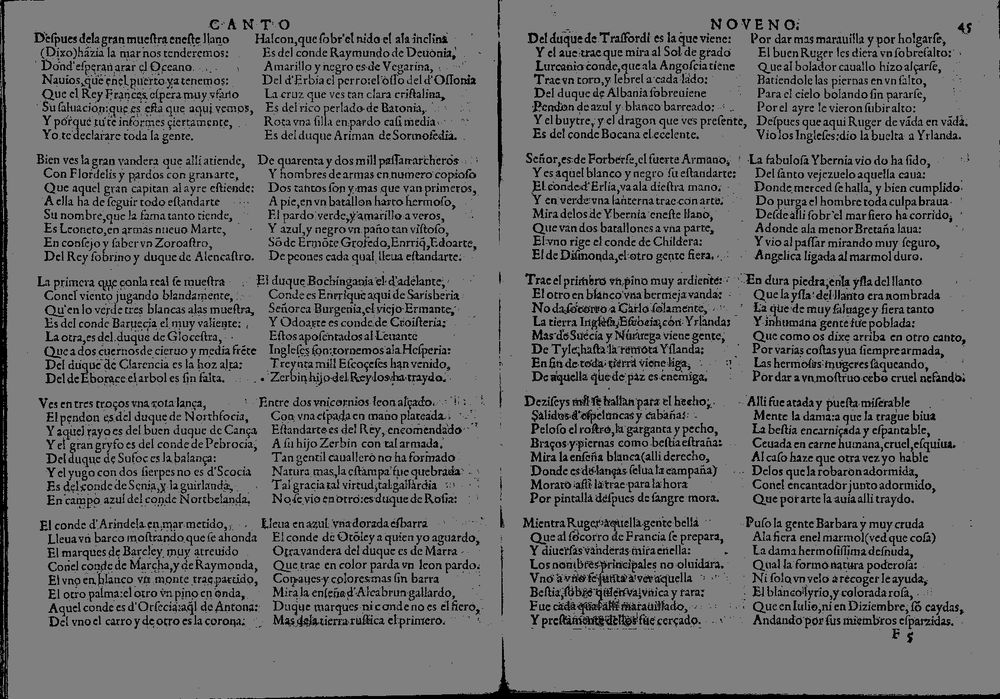 CANTO
Despues dela gran muestra eneste llano
(Dixo) házia la mar nos tenderemos:
Dond'esperan arar el Oceano.
Nauios, que en el puerto ya tenemos:
Que el Rey Frances espera muy vfano
Su saluacion: que es esta que aqui vemos,
Y porque tu te informes ciertamente,
Yo te declarare toda la gente.
Bien ves la gran vandera que alli atiende,
Con Flordelis y pardos con gran arte,
Que aquel gran capitan al ayre estiende:
A ella ha de seguir todo estandarte
Su nombre, que la fama tanto tiende,
Es Leoneto, en armas nueuo Marte,
En consejo y saber vn Zoroastro,
Del Rey sobrino y duque de Alencastro.
La primera que conla real se muestra
Conel viento jugando blandamente,
Qu'en lo verde tres blancas alas muestra,
Es del conde Baruecia el muy valiente:
La otra, es del duque de Glocestra,
Que a dos cuernos de cieruo y media frête
Del duque de Clarencia es la hoz alta:
Del de Eborace el arbol es sin falta.
Ves en tres troços vna rota lança,
El pendon es del duque de Northfocia,
Y aquel rayo es del buen duque de Cança
Y el gran gryfo es del conde de Pebrocia,
Del duque de Sufoc es la balança:
Y el yugo con dos sierpes no es d'Scocia
Es del conde de Senia, y la guirlanda,
En campo azul del conde Nortbelanda.
El conde d'Arindela en mar metido,
Lleua vn barco mostrando que se ahonda
El marques de Barcley muy atreuido
Conel conde de Marcha, y de Raymonda,
El vno en blanco vn monte trae partido,
El otro palma: el otro vn pino en onda,
Aquel conde es d'Orsecia: aql de Antona:
Del vno el carro y de otro es la corona:
Halcon, que sobr'el nido el ala inclina
Es del conde Raymundo de Deuonia,
Amarillo y negro es de Vegarina,
Del d'Erbia el perro: el osso del d'Ossonia
La cruz que ves tan clara cristalina,
Es del rico perlado de Batonia,
Rota vna silla en pardo casi media
Es del duque Ariman de Sormosedia.
De quarenta y dos mill passan archeros
Y hombres de armas en numero copioso
Dos tantos son y mas que van primeros,
A pie, en vn batallon harto hermoso,
El pardo verde, y amarillo a veros,
Y azul, y negro vn paño tan vistoso,
Sõ de Ermote Grofedo, Enrriq, Edoarte,
De peones cada qual lleua estandarte.
El duque Bochingania el d'adelante,
Conde es Enrrique aqui de Sarisberia
Señorea Burgenia, el viejo Ermante,
Y Odoarte es conde de Croisteria:
Estos aposentados al Leuante
Ingleses son: tornemos ala Hesperia:
Treynta mill Escoceses han venido,
Zerbin hijo del Rey los ha traydo.
Entre dos vnicornios leon alçado
Con vna espada en mano plateada
Estandarte es del Rey, encomendado
A su hijo Zerbin con tal armada,
Tan gentil cauallero no ha formado
Natura mas, la estampa fue quebrada
Tal gracia tal virtud, tal gallardia
No se vio en otro: es duque de Rosia:
Lleua en azul vna dorada esbarra
El conde de Otoley a quien yo aguardo,
Otra vandera del duque es de Marra
Que trae en color parda vn leon pardo.
Con aues y colores mas sin barra
Mira la enseña d'Alcabrun gallardo,
Duque marques ni conde no es el fiero,
Mas dela tierra rustica el primero.
NOVENO.
45
Del duque de Trasfordi es la que viene:
Y el aue trae que mira al Sol de grado
Lurcanio conde, que ala Angoscia tiene
Trae vn toro, y lebrel a cada lado:
Del duque de Albania sobreuiene
Pendon de azul y blanco barreado:
Y el buytre, y el dragon que ves presente,
Es del conde Bocana el ecelente.
Señor, es de Forberse, el fuerte Armano,
Y es aquel blanco y negro su estandarte:
El conde d'Erlia, va ala diestra mano.
Y en verde vna lanterna trae con arte.
Mira delos de Ybernia eneste llano,
Que van dos batallones a vna parte,
El vno rige el conde de Childera:
El de Dismonda, el otro gente fiera.
Trae el primero vn pino muy ardiente:
El otro en blanco vna bermeja vanda:
No da socorro a Carlo solamente,
La tierra Inglesa, Escocia, con Yrlanda:
Mas de Suecia y Nuruega viene gente,
De Tyle, hasta la remota Yslanda:
En fin de toda tierra viene liga,
De aquella que de paz es enemiga.
Deziseys mil se hallan para el hecho,
Salidos d'espeluncas y cabañas:
Peloso el rostro, la garganta y pecho,
Braços y piernas como bestia estraña:
Mira la enseña blanca (alli derecho,
Donde es de lanças selua la campaña)
Morato assi la trae para la hora
Por pintalla despues de sangre mora.
Mientra Ruger aquella gente bella
Que al socorro de Francia se prepara,
Y diuersas vanderas mira enella:
Los nombres principales no oluidara.
Vno a vno se junta a ver aquella
Bestia, sobre quien va, vnica y rara:
Fue cada qual alli marauillado,
Y prestamente dellos fue cercado.
Por dar mas marauilla y por holgarse,
El buen Ruger les diera vn sobresalto:
Que al bolador cauallo hizo alçarse,
Batiendole las piernas en vn falto,
Para el cielo bolando sin pararse,
Por el ayre le vieron subir alto:
Despues que aqui Ruger de vãda en vãda.
Vio los Ingleses: dio la buelta a Yrlanda.
La fabulosa Ybernia vio do ha sido,
Del santo vejezuelo aquella caua:
Donde merced se halla, y bien cumplido
Do purga el hombre toda culpa braua
Desde alli sobr'el mar fiero ha corrido,
Adonde ala menor Bretaña laua:
Y vio al passar mirando muy seguro,
Angelica ligada al marmol duro.
En dura piedra, enla ysla del llanto
Que la ysla del llanto era nombrada
La que de muy saluage y fiera tanto
Y inhumana gente fue poblada:
Que como os dixe arriba en otro canto,
Por varias costas yua siempre armada,
Las hermosas mugeres saqueando,
Por dar a vn mostruo cebo cruel nefando.
Alli fue atada y puesta miserable
Mente la dama: a que la trague biua
La bestia encarniçada y espantable,
Ceuada en carne humana, cruel, esquiua.
Al caso haze que otra vez yo hable
Delos que la robaron adormida,
Conel encantador junto adormido,
Que por arte la auia alli traydo.
Puso la gente Barbara y muy cruda
Ala fiera enel marmol (ved que cosa)
La dama hermosissima desnuda,
Qual la formo natura poderosa:
Ni solo vn velo a recoger le ayuda,
El blanco lyrio, y colorada rosa,
Que en Iulio, ni en Diziembre, sõ caydas,
Andando por sus miembros esparzidas.
F 5